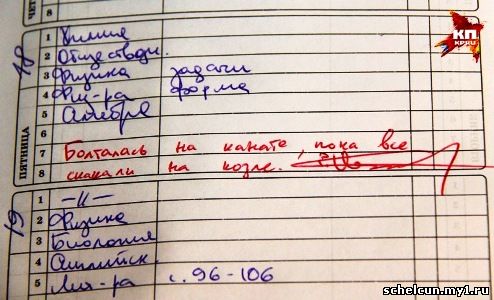 8
18
ПЯТНИЦА
1 Химия
2 Обществозн.
3 Физика задачи
4 Физ-ра форма
5 Алгебра
6
7 Болталась на канате, пока все
8 скакали на козле.
19
1 -||-
2 Физика
3 Биология
4 Английск.
5 Лит-ра с. 96-106
КП
KP.RU
schelcun.my1.ru